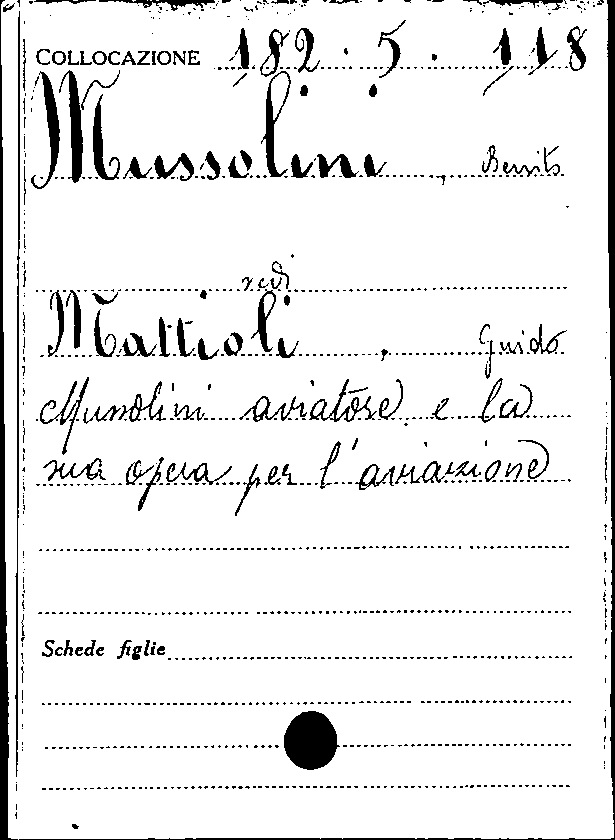 COLLOCAZIONE 182. 5. 118
Mussolini, Benito
vedi
Mattioli, Guido
Mussolini aviatore e la
sua opera per l'aviazione
Schede figlie